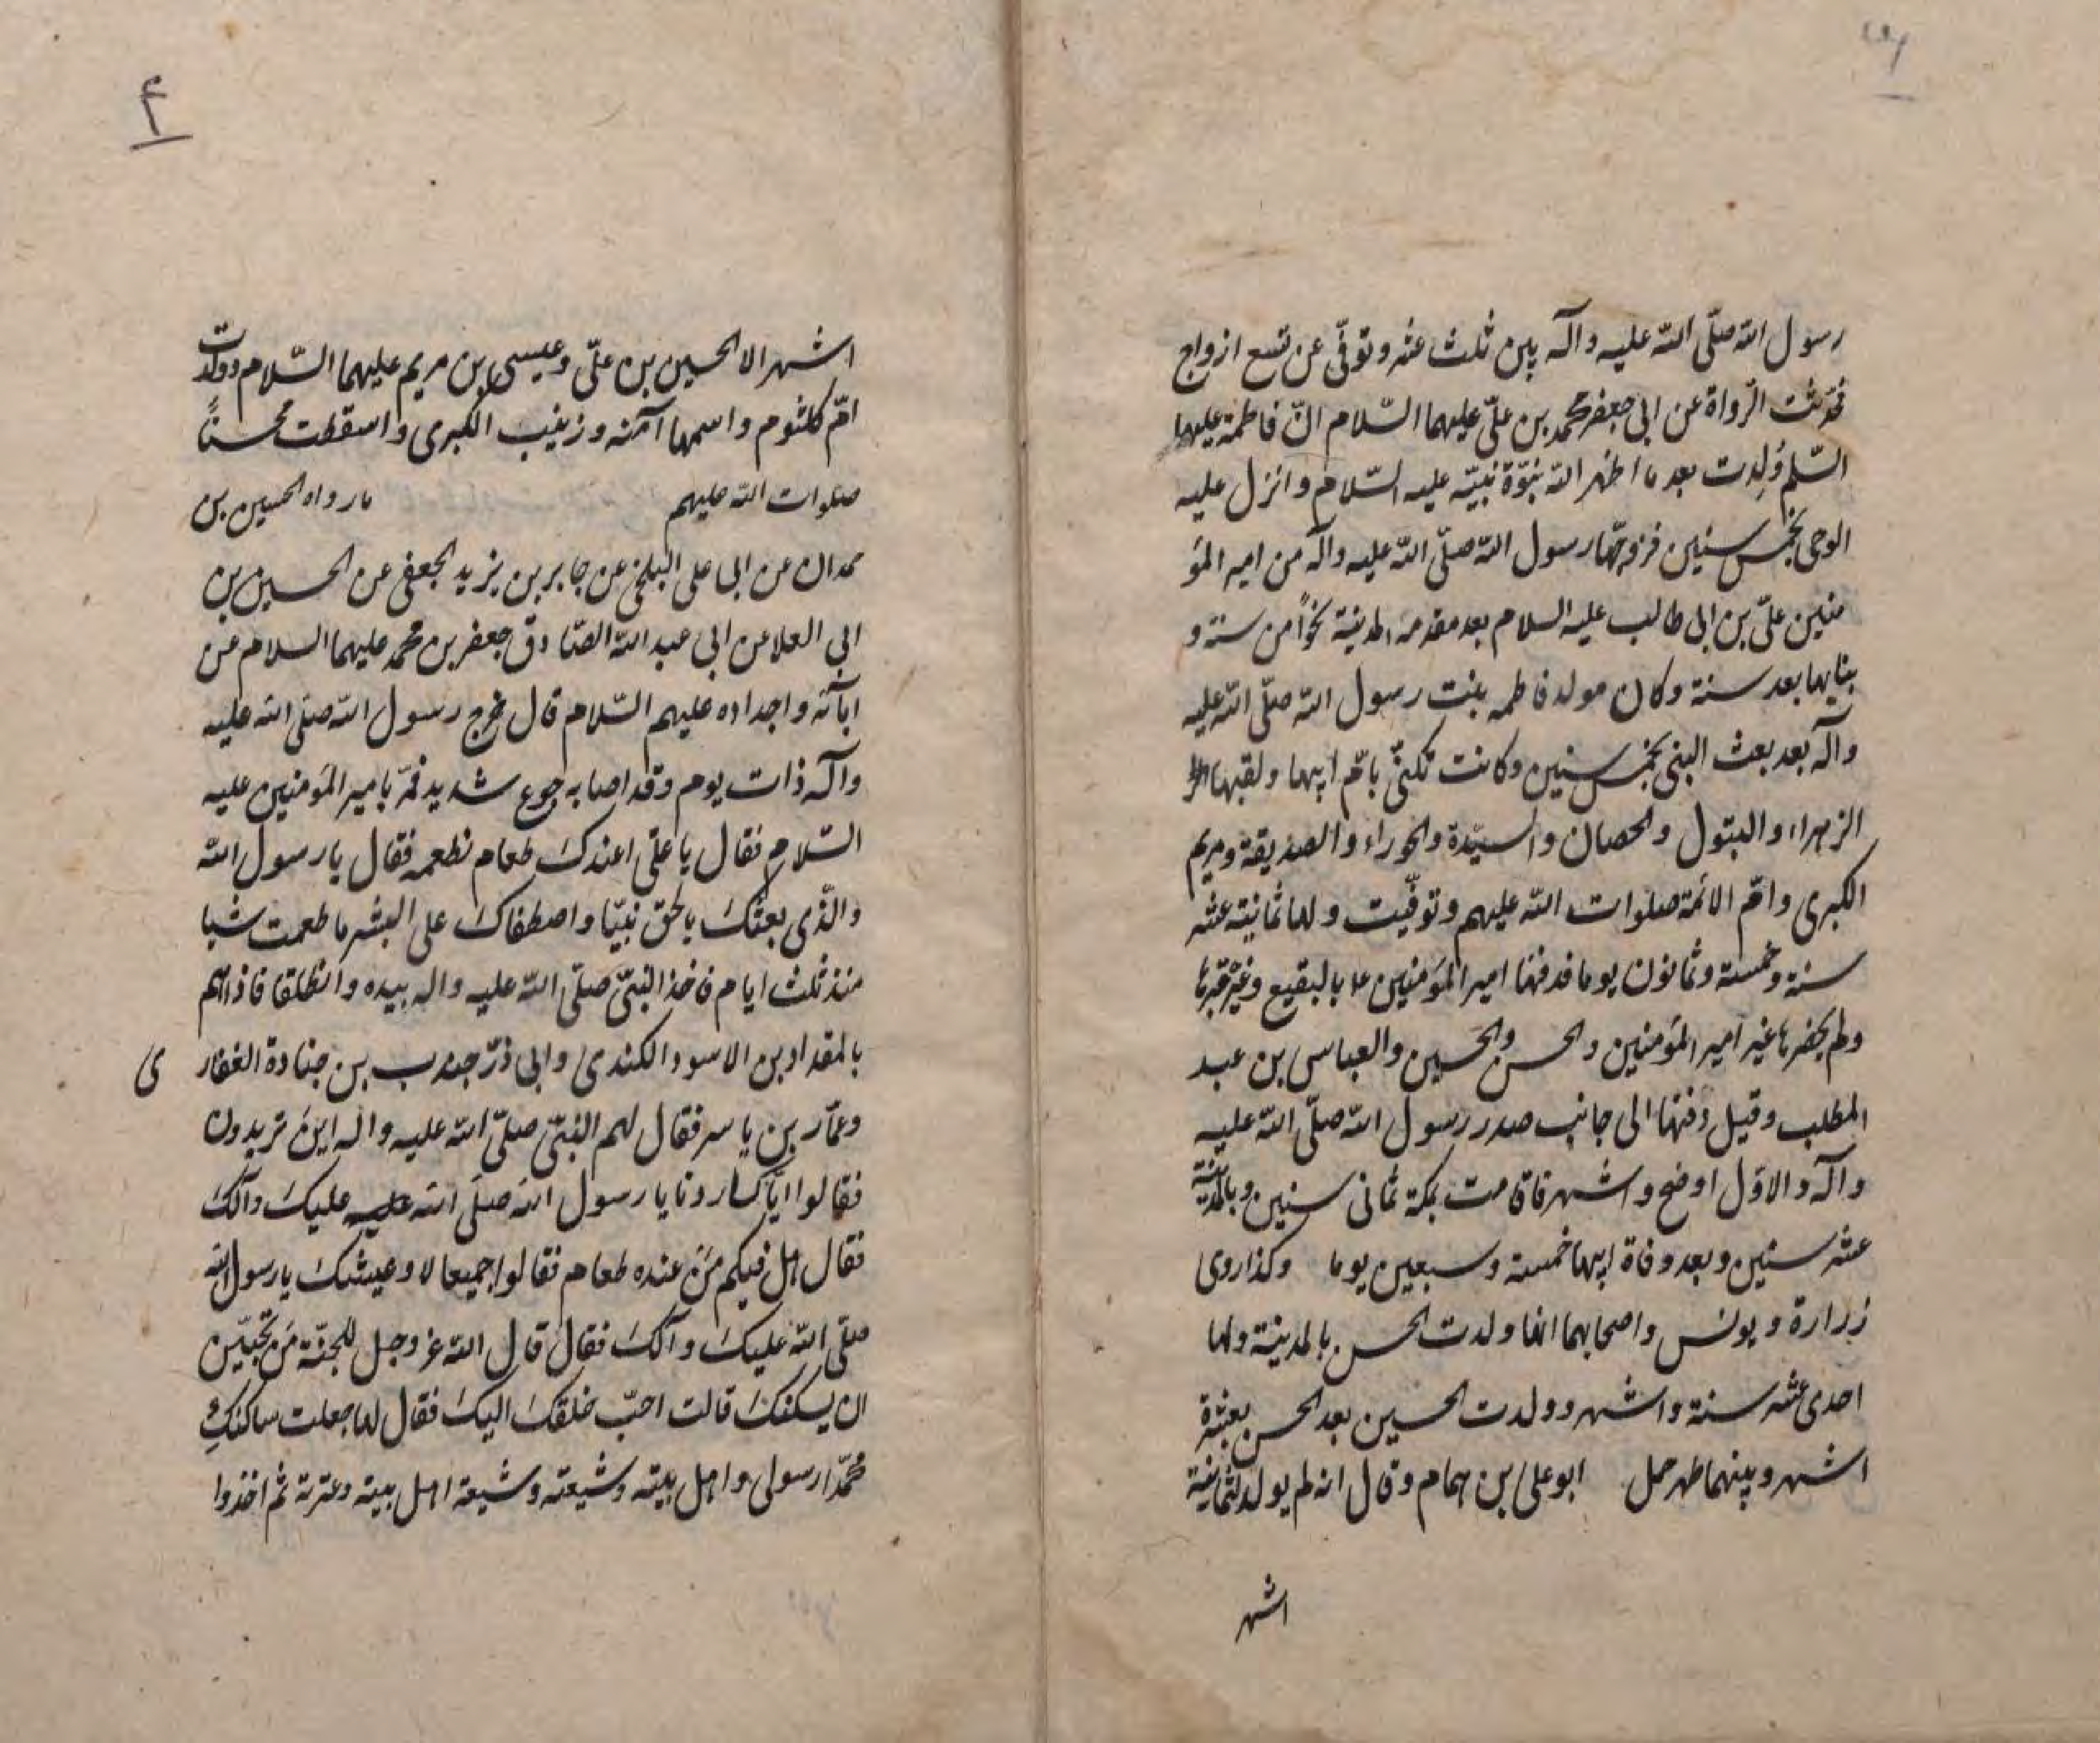 رسول الله صلّى الله عليه وآله بين ثلث عشر وتوفّى عن تسع ازواج
فحدّثت الرّواة عن ابى جعفر محمد بن علىّ عليهما السّلام انّ فاطمة عليها
السّلم وُلِدت بعد ما اظهر الله نبوّة نبيّه عليه السّلام وانزل عليه
الوحى بخمس سنين فزوجّها رسول الله صلّى الله عليه وآله من امير المؤ
منين علىّ بن ابى طالب عليه السلام بعد مقدمه المدينة نحواً من سنة و
بنابها بعد سنة وكان مولد فاطمه بنت رسول الله صلّى الله عليه
وآله بعد بعث النبى بخمس سنين وكانت تكنىّ بامّ ابيها ولقبها
الزهراء والبتول والحصان والسيّدة والحوراء والصديقة ومريم
الكبرى وامّ الائمة صلوات الله عليهم وتوفّيت ولها ثمانية عشر
سنة وخمسة وثمانون يوما فدفنها امير المؤمنين ع بالبقيع وغيّر قبرها
ولم يحضرها غير امير المؤمنين والحسن والحسين والعباس بن عبد
المطلب وقيل دفنها الى جانب صدر رسول الله صلّى الله عليه
وآله والاوّل اوضح واشهر فاقامت بمكة ثمانى سنين وبالمدينة
عشر سنين وبعد وفاة ابيها خمسة وسبعين يوما وكذا روى
زرارة ويونس واصحابهما انها ولدت الحسن بالمدينة ولها
احدى عشر سنة واشهر وولدت الحسين بعد الحسن بعشرة
اشهر وبينهما طهر حمل ابو على بن همام وقال انه لم يولد لثمانية
اشهر
۴
اشهر الا الحسين بن علىّ وعيسى بن مريم عليهما السّلام وولدت
امّ كلثوم واسمها آمنه وزينب الكبرى واسقطت محسناً
صلوات الله عليهم ما رواه الحسين بن
حمدان عن ابى على البلخى عن جابر بن يزيد الجعفى عن الحسين بن
ابى العلا عن ابى عبد الله الصّادق جعفر بن محمد عليهما السلام عن
ابآئه واجداده عليهم السّلام قال خرج رسول الله صلى الله عليه
وآله ذات يوم وقد اصابه جوع شديد فمرّ بامير المؤمنين عليه
السّلام فقال يا علىّ اعندك طعام نطعمه فقال يا رسول الله
والّذى بعثك بالحق نبيّا واصطفاك على البشر ما طعمت شيا
منذ ثلث ايام فاخذ النبىّ صلّى الله عليه واله بيده وانطلقا فاذا هم
بالمقداد بن الاسود الكندى وابى ذرّ جندب بن جنادة الغفارى
وعمّار بن ياسر فقال لهم النبىّ صلّى الله عليه واله اين تريدون
فقالوا ايّاك اردنا يا رسول الله صلّى الله عليه عليك وآلك
فقال اهل فيكم مَن عنده طعام فقالوا جميعا لا وعيشك يا رسول الله
صلّى الله عليك وآلك فقال قال الله عز وجل للجنّة مَن تحبّين
ان يسكنك قالت احبّ خلقك اليك فقال لها جعلت ساكنكِ
محمّدا رسولى واهل بيته وشيعته وشيعة اهل بيته وعترته ثم اخذوا